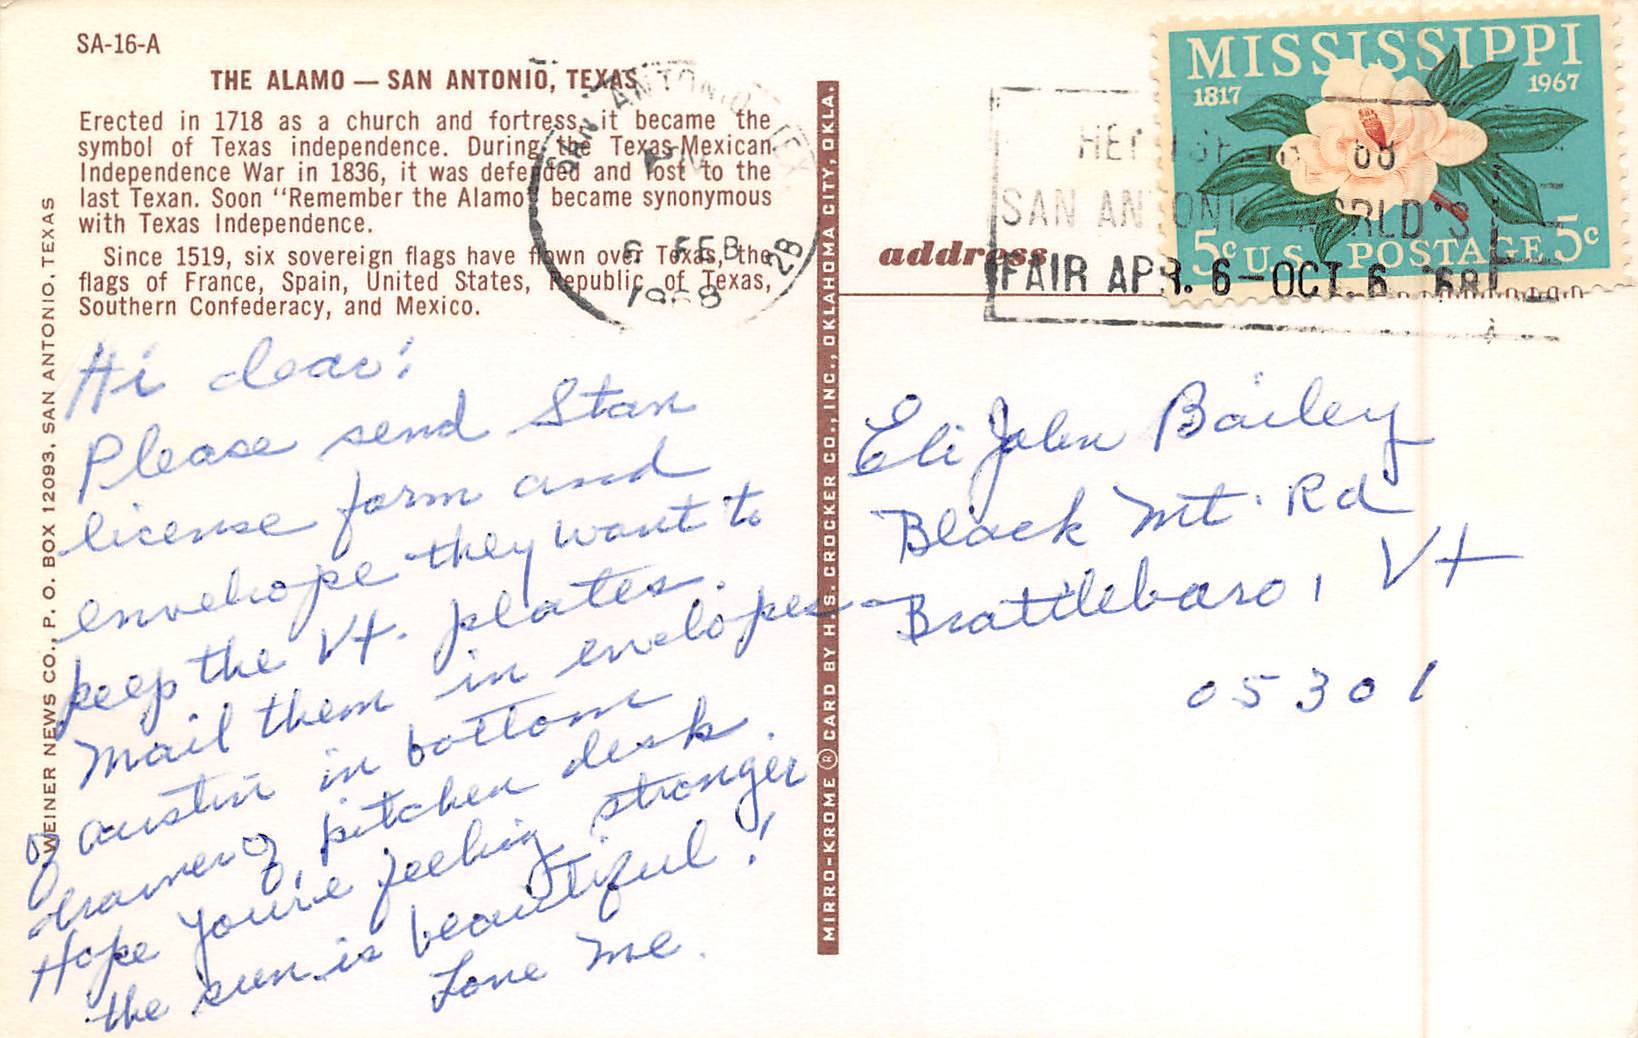 SA-16-A
THE ALAMO — SAN ANTONIO, TEXAS
Erected in 1718 as a church and fortress, it became the
symbol of Texas independence. During the Texas-Mexican
Independence War in 1836, it was defended and lost to the
last Texan. Soon "Remember the Alamo" became synonymous
with Texas Independence.
Since 1519, six sovereign flags have flown over Texas, the
flags of France, Spain, United States, Republic of Texas,
Southern Confederacy, and Mexico.
WEINER NEWS CO., P. O. BOX 12093, SAN ANTONIO, TEXAS
Hi dear!
Please send Stan
license form and
envelope they want to
keep the Vt. plates.
Mail them in envelopes
of austin in bottom
drawer of kitchen desk.
Hope you're feeling stronger
the sun is beautiful!
Love Me.
MIRRO-KROME ® CARD BY H.S. CROCKER CO., INC., OKLAHOMA CITY, OKLA.
SAN ANTONIO, TEX
PM
6 FEB
1968
2B
address
SAN ANTONIO WORLD'S
FAIR APR. 6—OCT. 6 '68
MISSISSIPPI
1817 1967
5c U.S. POSTAGE 5c
Eli John Bailey
Black Mt. Rd
Brattleboro, Vt
05301